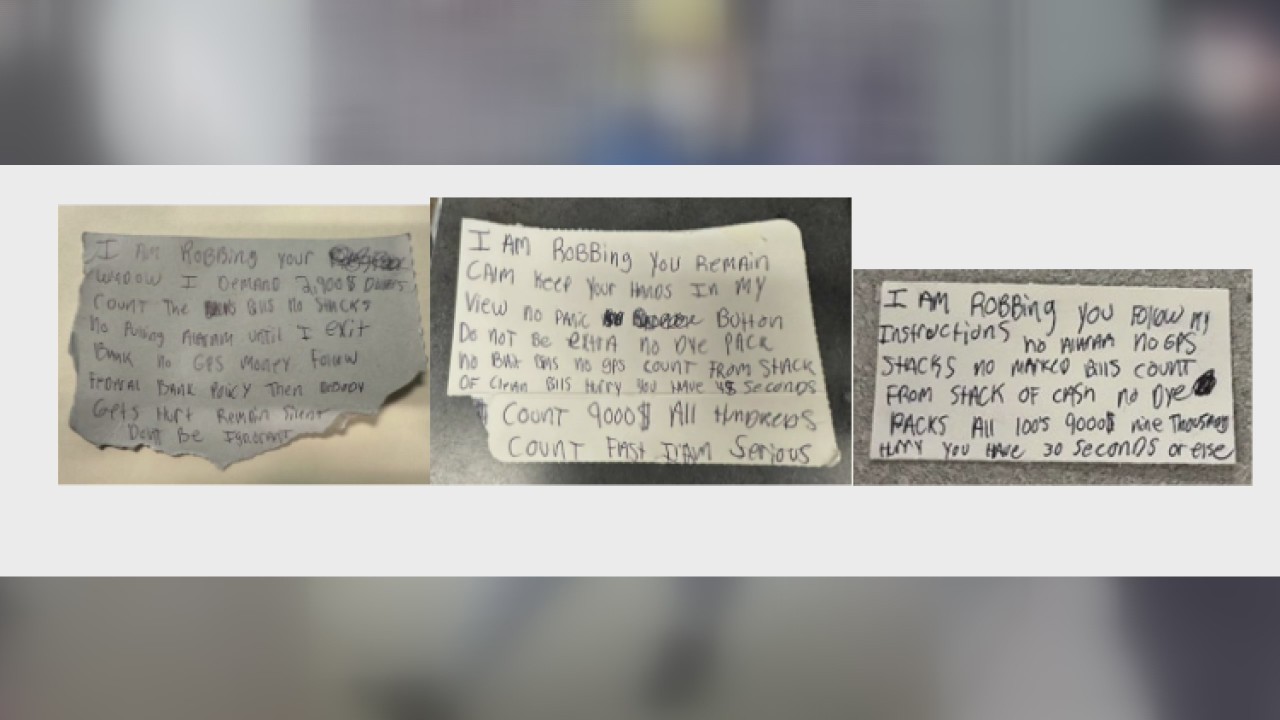 I AM ROBBING your
window I DEMAND 2,900$ Dollars
COUNT The Bills No STACKS
No Pushing Alarm UNTIL I exit
Bank no GPS Money Follow
FEDERAL BANK POLICY Then nobody
Gets Hurt Remain Silent
Dont Be Ignorant
I AM ROBBING YOU REMAIN
CAlM KEEP Your HANDS IN MY
VIEW NO PANIC BUTTON
Do NOT Be EXTRA NO DYE PACK
NO BAIT no gps COUNT FROM STACK
OF Clean Bills Hurry You HAVE 45 Seconds
COUNT 9000$ All HUNDREDS
COUNT FAST I'AM Serious
I AM ROBBING YOU FOLLOW MY
INSTRUCTIONS NO ALARM NO GPS
STACKS NO MARKED BILLS COUNT
FROM STACK OF CASH NO DYE
PACKS All 100'S 9000$ nine THOUSAND
Hurry YOU HAVE 30 SECONDS or else